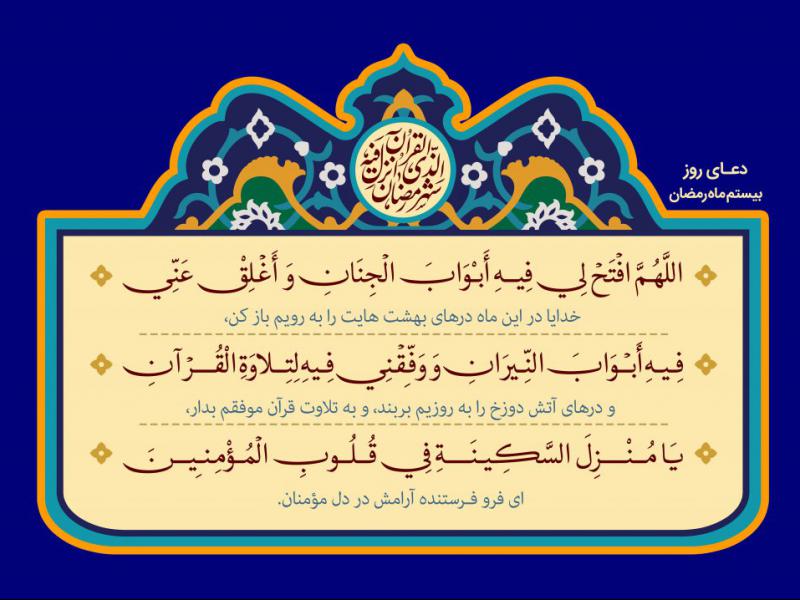 شهر رمضان الذی انزل فیه القرآن
دعـای روز
بیستم ماه رمضان
اللَّهُمَّ افْتَحْ لِي فِيهِ أَبْوَابَ الْجِنَانِ وَ أَغْلِقْ عَنِّي
خدایا در این ماه درهای بهشت هایت را به رویم باز کن،
فِيهِ أَبْوَابَ النِّيرَانِ وَ وَفِّقْنِي فِيهِ لِتِلَاوَةِ الْقُرْآنِ
و درهای آتش دوزخ را به روزیم بربند، و به تلاوت قرآن موفقم بدار،
يَا مُنْزِلَ السَّكِينَةِ فِي قُلُوبِ الْمُؤْمِنِينَ
ای فرو فرستنده آرامش در دل مؤمنان.